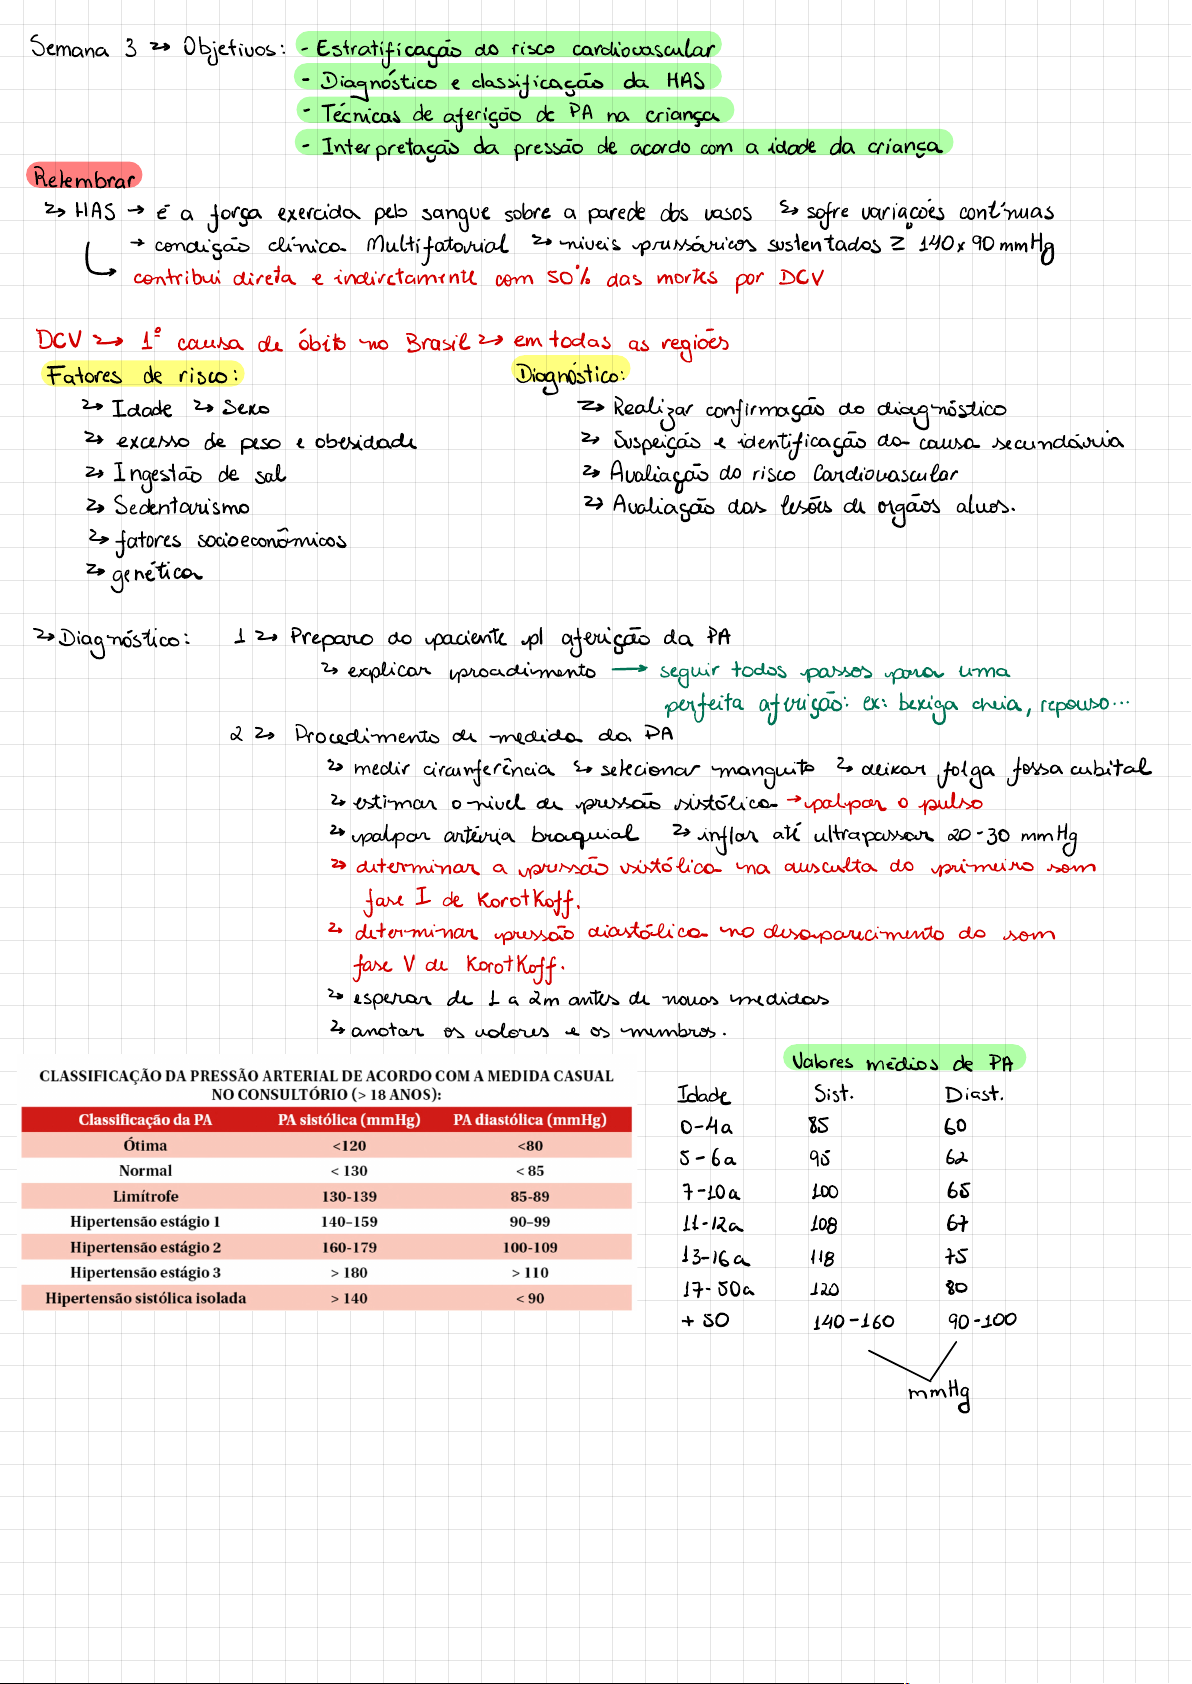 Semana 3 → Objetivos: - Estratificação do risco cardiovascular
- Diagnóstico e classificação da HAS
- Técnicas de aferição de PA na criança
- Interpretação da pressão de acordo com a idade da criança
Relembrar
→ HAS → é a força exercida pelo sangue sobre a parede dos vasos → sofre variações contínuas
→ condição clínica Multifatorial → níveis pressóricos sustentados ≥ 140 x 90 mmHg
contribui direta e indiretamente com 50% das mortes por DCV
DCV → 1ª causa de óbito no Brasil → em todas as regiões
Fatores de risco: Diagnóstico:
→ Idade → Sexo → Realizar confirmação do diagnóstico
→ excesso de peso e obesidade → Suspeição e identificação da causa secundária
→ Ingestão de sal → Avaliação do risco Cardiovascular
→ Sedentarismo → Avaliação das lesões de orgãos alvos.
→ fatores socioeconômicos
→ genética
→ Diagnóstico: 1 → Preparo do paciente p/ aferição da PA
→ explicar procedimento → seguir todos passos para uma
perfeita aferição: ex: bexiga cheia, repouso...
2 → Procedimento de medida da PA
→ medir circunferência → selecionar manguito → deixar folga fossa cubital
→ estimar o nível de pressão sistólica → palpar o pulso
→ palpar artéria braquial → inflar até ultrapassar 20-30 mmHg
→ determinar a pressão sistólica na ausculta do primeiro som
fase I de Korotkoff.
→ determinar pressão diastólica no desaparecimento do som
fase V de Korotkoff.
→ esperar de 1 a 2m antes de novas medidas
→ anotar os valores e os membros.
CLASSIFICAÇÃO DA PRESSÃO ARTERIAL DE ACORDO COM A MEDIDA CASUAL
NO CONSULTÓRIO (> 18 ANOS):
Classificação da PA PA sistólica (mmHg) PA diastólica (mmHg)
Ótima <120 <80
Normal < 130 < 85
Limítrofe 130-139 85-89
Hipertensão estágio 1 140–159 90–99
Hipertensão estágio 2 160-179 100-109
Hipertensão estágio 3 > 180 > 110
Hipertensão sistólica isolada > 140 < 90
Valores médios de PA
Idade Sist. Diast.
0-4a 85 60
5-6a 95 62
7-10a 100 65
11-12a 108 67
13-16a 118 75
17-50a 120 80
+ 50 140-160 90-100
mmHg